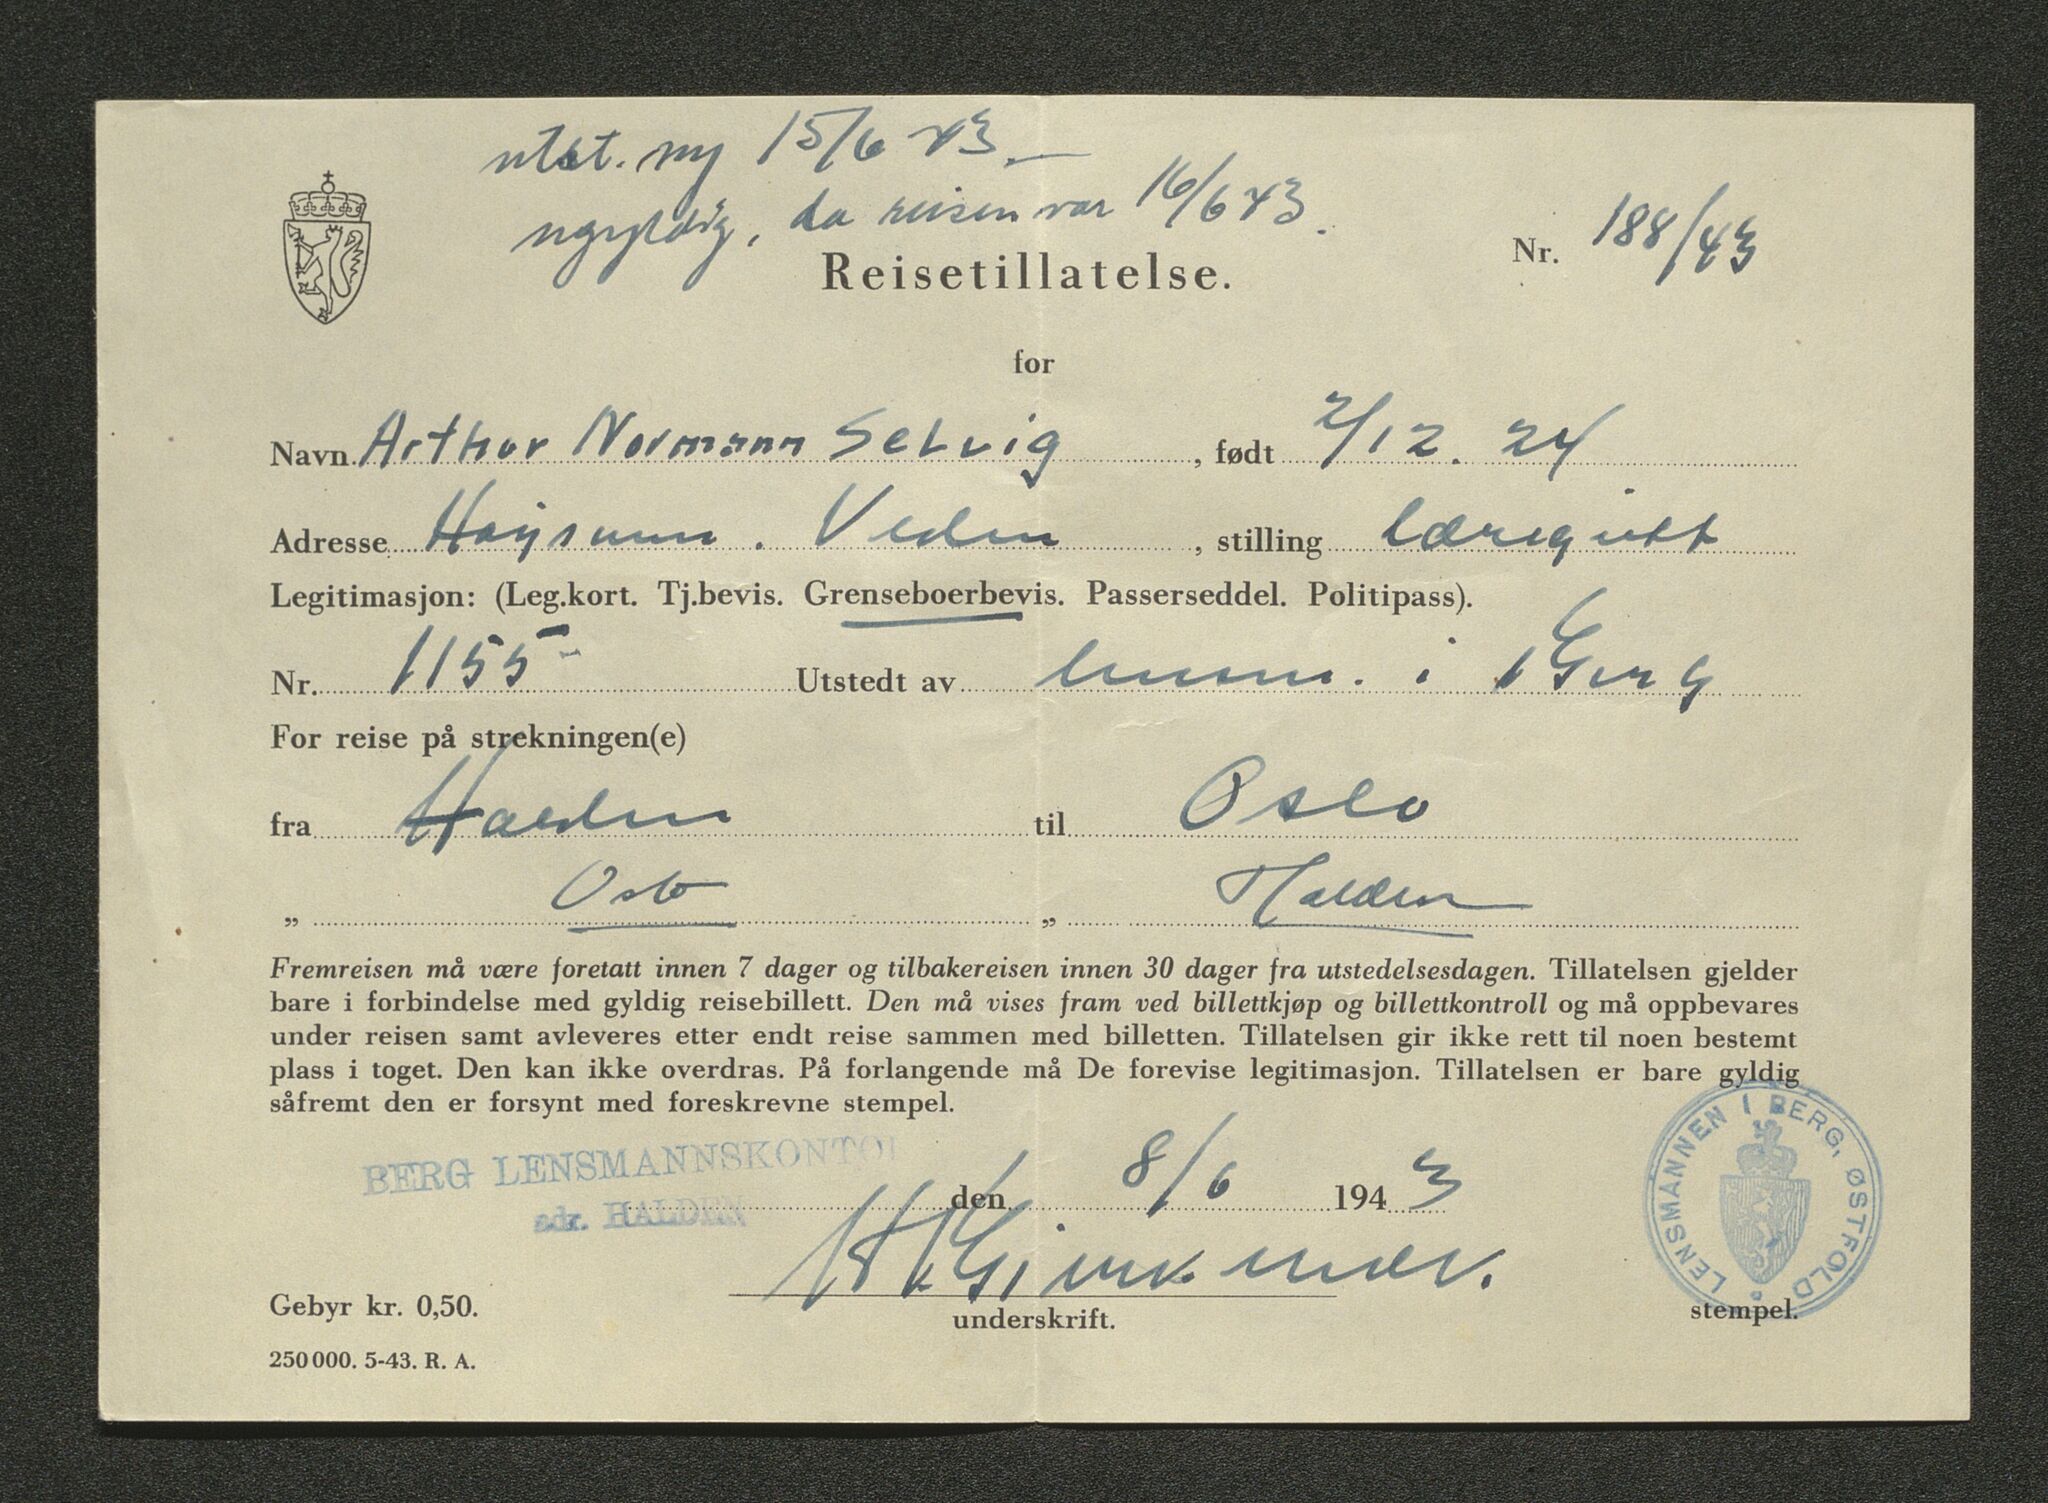 utst. ny 15/6 43.
ugyldig, da reisen var 16/6 43.
Reisetillatelse.
Nr. 188/43
for
Navn Arthur Normann Selvig, født 2/12. 24
Adresse Høysunn. Veden, stilling læregutt
Legitimasjon: (Leg.kort. Tj.bevis. Grenseboerbevis. Passerseddel. Politipass).
Nr. 1155 Utstedt av lensm. i Berg
For reise på strekningen(e)
fra Halden til Oslo
„ Oslo „ Halden
Fremreisen må være foretatt innen 7 dager og tilbakereisen innen 30 dager fra utstedelsesdagen. Tillatelsen gjelder
bare i forbindelse med gyldig reisebillett. Den må vises fram ved billettkjøp og billettkontroll og må oppbevares
under reisen samt avleveres etter endt reise sammen med billetten. Tillatelsen gir ikke rett til noen bestemt
plass i toget. Den kan ikke overdras. På forlangende må De forevise legitimasjon. Tillatelsen er bare gyldig
såfremt den er forsynt med foreskrevne stempel.
BERG LENSMANNSKONTOR
adr. HALDEN
den 8/6 1943
LENSMANNEN I BERG, ØSTFOLD
Gebyr kr. 0,50.
underskrift.
stempel.
250 000. 5-43. R. A.